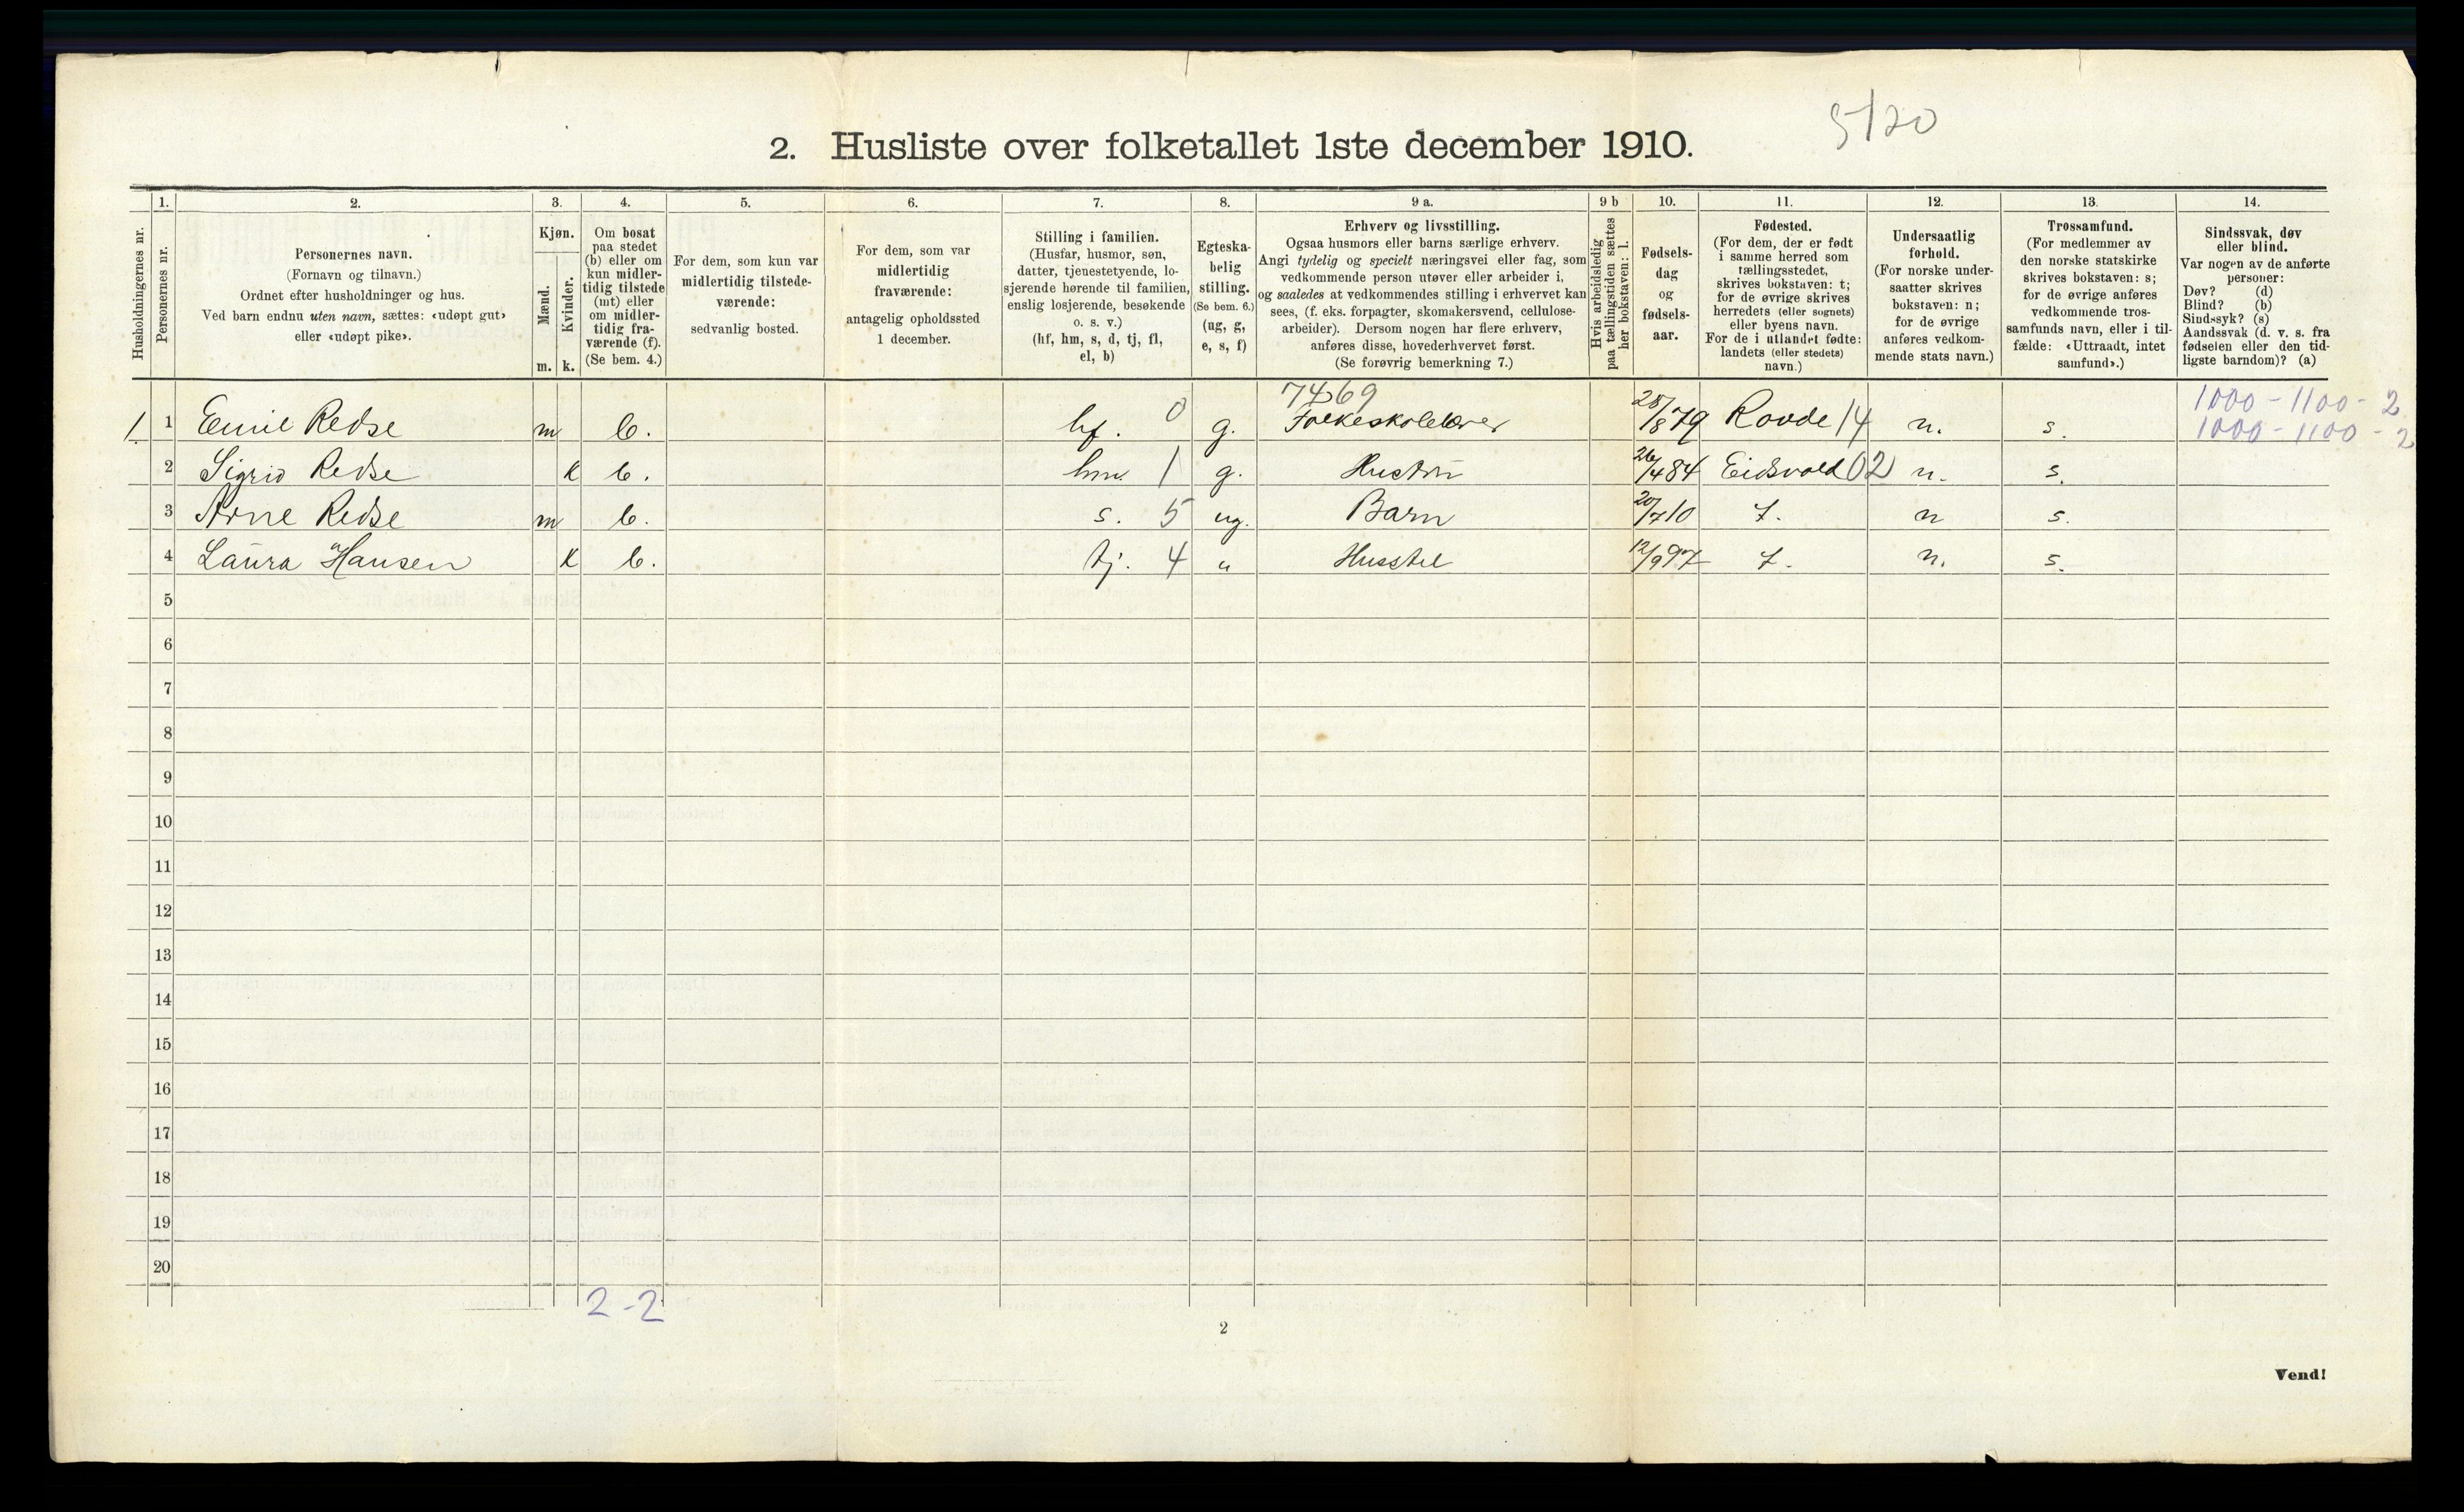 5/20
2. Husliste over folketallet 1ste december 1910.
Husholdningernes nr.
1.
Personernes nr.
2.
Personernes navn.
(Fornavn og tilnavn.)
Ordnet efter husholdninger og hus.
Ved barn endnu uten navn, sættes: «udøpt gut»
eller «udøpt pike».
3.
Kjøn.
Mænd.
Kvinder.
m. k.
4.
Om bosat
paa stedet
(b) eller om
kun midler-
tidig tilstede
(mt) eller
om midler-
tidig fra-
værende (f).
(Se bem. 4.)
5.
For dem, som kun var
midlertidig tilstede-
værende:
sedvanlig bosted.
6.
For dem, som var
midlertidig
fraværende:
antagelig opholdssted
1 december.
7.
Stilling i familien.
(Husfar, husmor, søn,
datter, tjenestetyende, lo-
sjerende hørende til familien,
enslig losjerende, besøkende
o. s. v.)
(hf, hm, s, d, tj, fl,
el, b)
8.
Egteska-
belig
stilling.
(Se bem. 6.)
(ug, g,
e, s, f)
9 a.
Erhverv og livsstilling.
Ogsaa husmors eller barns særlige erhverv.
Angi tydelig og specielt næringsvei eller fag, som
vedkommende person utøver eller arbeider i,
og saaledes at vedkommendes stilling i erhvervet kan
sees, (f. eks. forpagter, skomakersvend, cellulose-
arbeider). Dersom nogen har flere erhverv,
anføres disse, hovederhvervet først.
(Se forøvrig bemerkning 7.)
9 b
Hvis arbeidsledig
paa tællingstiden sættes
her bokstaven: l.
10.
Fødsels-
dag
og
fødsels-
aar.
11.
Fødested.
(For dem, der er født
i samme herred som
tællingsstedet,
skrives bokstaven: t;
for de øvrige skrives
herredets (eller sognets)
eller byens navn.
For de i utlandet fødte:
landets (eller stedets)
navn.)
12.
Undersaatlig
forhold.
(For norske under-
saatter skrives
bokstaven: n;
for de øvrige
anføres vedkom-
mende stats navn.)
13.
Trossamfund.
(For medlemmer av
den norske statskirke
skrives bokstaven: s;
for de øvrige anføres
vedkommende tros-
samfunds navn, eller i til-
fælde: «Uttraadt, intet
samfund».)
14.
Sindssvak, døv
eller blind.
Var nogen av de anførte
personer:
Døv? (d)
Blind? (b)
Sindssyk? (s)
Aandssvak (d. v. s. fra
fødselen eller den tid-
ligste barndom)? (a)
7469 1000-1100-2
1 1 Emil Redse m b. hf. 0 g. Folkeskolelærer 28/8 79 Rovde 14 n. s. 1000-1100-2
2 Sigrid Redse k b. hm. 1 g. Hustru 26/4 84 Eidsvold 02 n. s.
3 Arne Redse m b. s. 5 ug. Barn 20/7 10 t. n s.
4 Laura Hansen k b. tj. 4 " Husstel 12/9 97 t. n. s.
5
6
7
8
9
10
11
12
13
14
15
16
17
18
19
20
2-2
2
Vend!